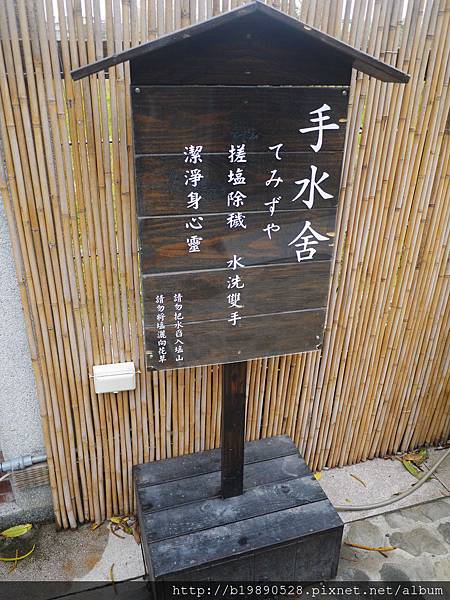 手水舍
てみずや
搓塩除穢 水洗雙手
潔淨身心靈
請勿把水舀入塩山
請勿將塩灑向花草
http://b19890528.pixnet.net/album